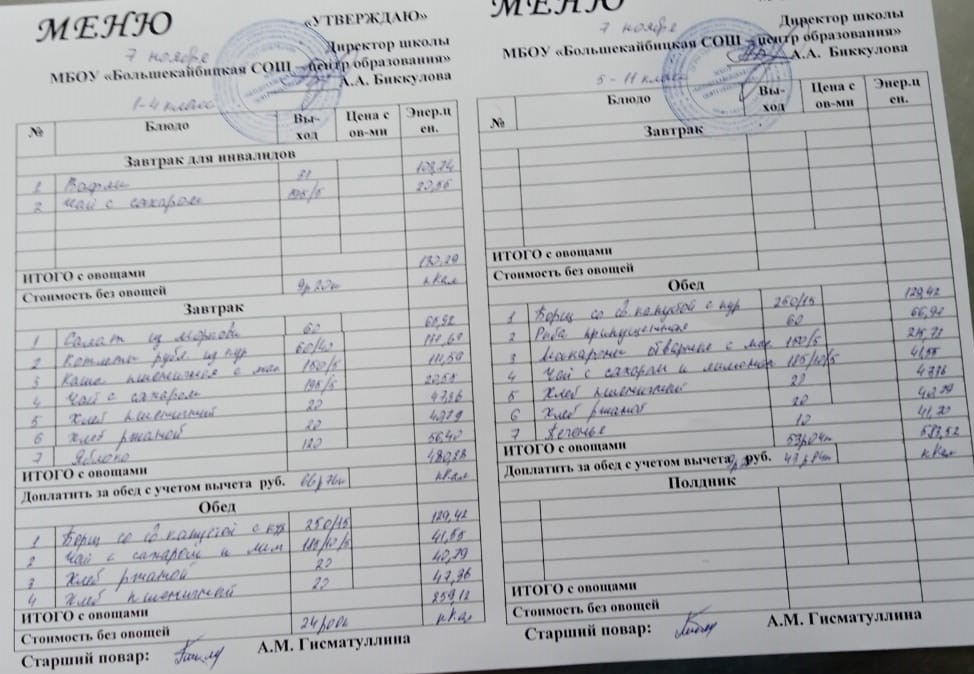 МЕНЮ
«УТВЕРЖДАЮ»
7 ноября
Директор школы
МБОУ «Большекайбицкая СОШ – центр образования»
А.А. Биккулова
1-4 класс
№ Блюдо Вы-ход Цена с ов-ми Энер.ц ен.
Завтрак для инвалидов
1 Вафли 31
2 Чай с сахаром 195/5 20,55
ИТОГО с овощами
Стоимость без овощей 9р20к ккал
Завтрак
1 Салат из моркови 60
2 Котлеты рубл из кур 60/40 111,69
3 Каша пшеничная с мас 150/5 111,59
4 Чай с сахаром 195/5 20,55
5 Хлеб пшеничный 20 47,36
6 Хлеб ржаной 20 40,79
7 Яблоко 120 56,40
ИТОГО с овощами 480,28
Доплатить за обед с учетом вычета руб. 66р76к ккал
Обед
1 Борщ со св капустой с кур 250/15 129,42
2 Чай с сахаром и лим 185/10/5 41,55
3 Хлеб ржаной 20 40,79
4 Хлеб пшеничный 20 47,36
ИТОГО с овощами 259,12
Стоимость без овощей 24р00к ккал
Старший повар: А.М. Гисматуллина
МЕНЮ
7 ноября
Директор школы
МБОУ «Большекайбицкая СОШ – центр образования»
А.А. Биккулова
5-11 класс
№ Блюдо Вы-ход Цена с ов-ми Энер.ц ен.
Завтрак
ИТОГО с овощами
Стоимость без овощей
Обед
1 Борщ со св капустой с кур 250/15 129,42
2 Рыба припущенная 60 66,92
3 Макароны отварные с мас 150/5 215,71
4 Чай с сахаром и лимоном 185/10/5 41,55
5 Хлеб пшеничный 20 47,36
6 Хлеб ржаной 20 40,79
7 Печенье 10 41,70
ИТОГО с овощами 53р04к 583,52
Доплатить за обед с учетом вычета руб. 43р84к ккал
Полдник
ИТОГО с овощами
Стоимость без овощей
Старший повар: А.М. Гисматуллина